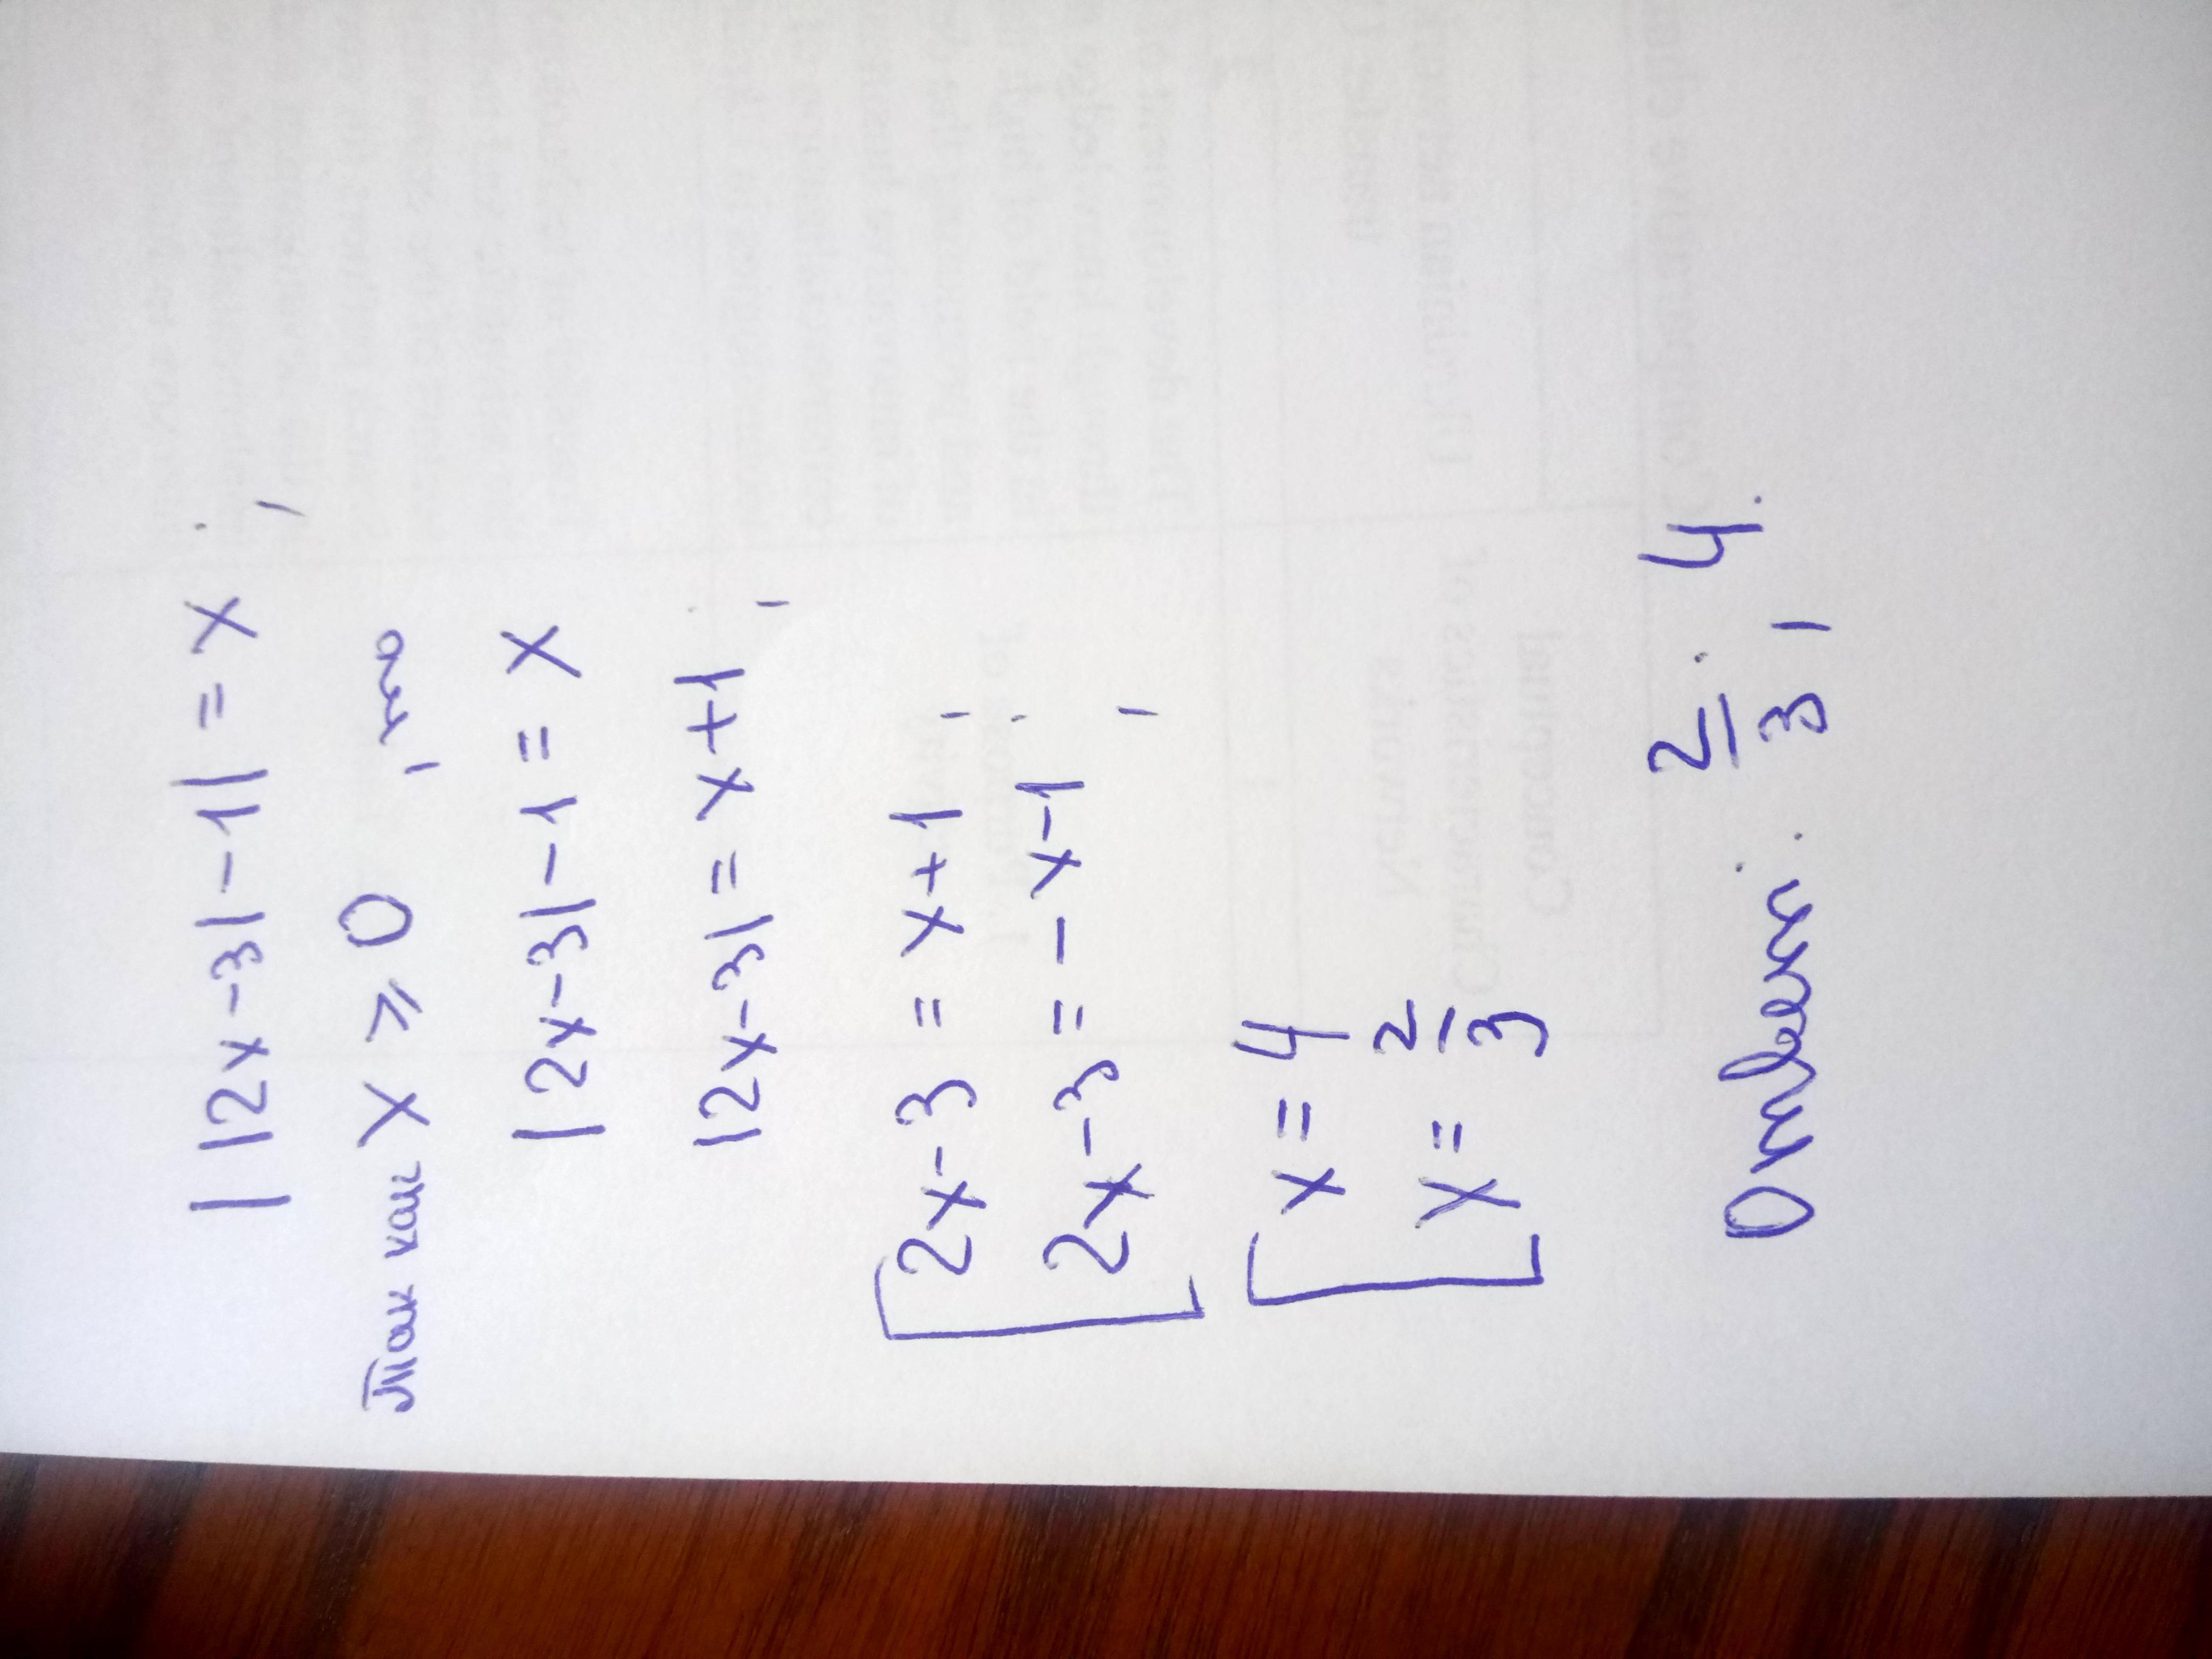 ||2x-3|-1|=x;
Так как x⩾0, то
|2x-3|-1=x
|2x-3|=x+1;
[2x-3=x+1,
2x-3=-x-1;
[x=4
x=2/3
Ответ: 2/3; 4.